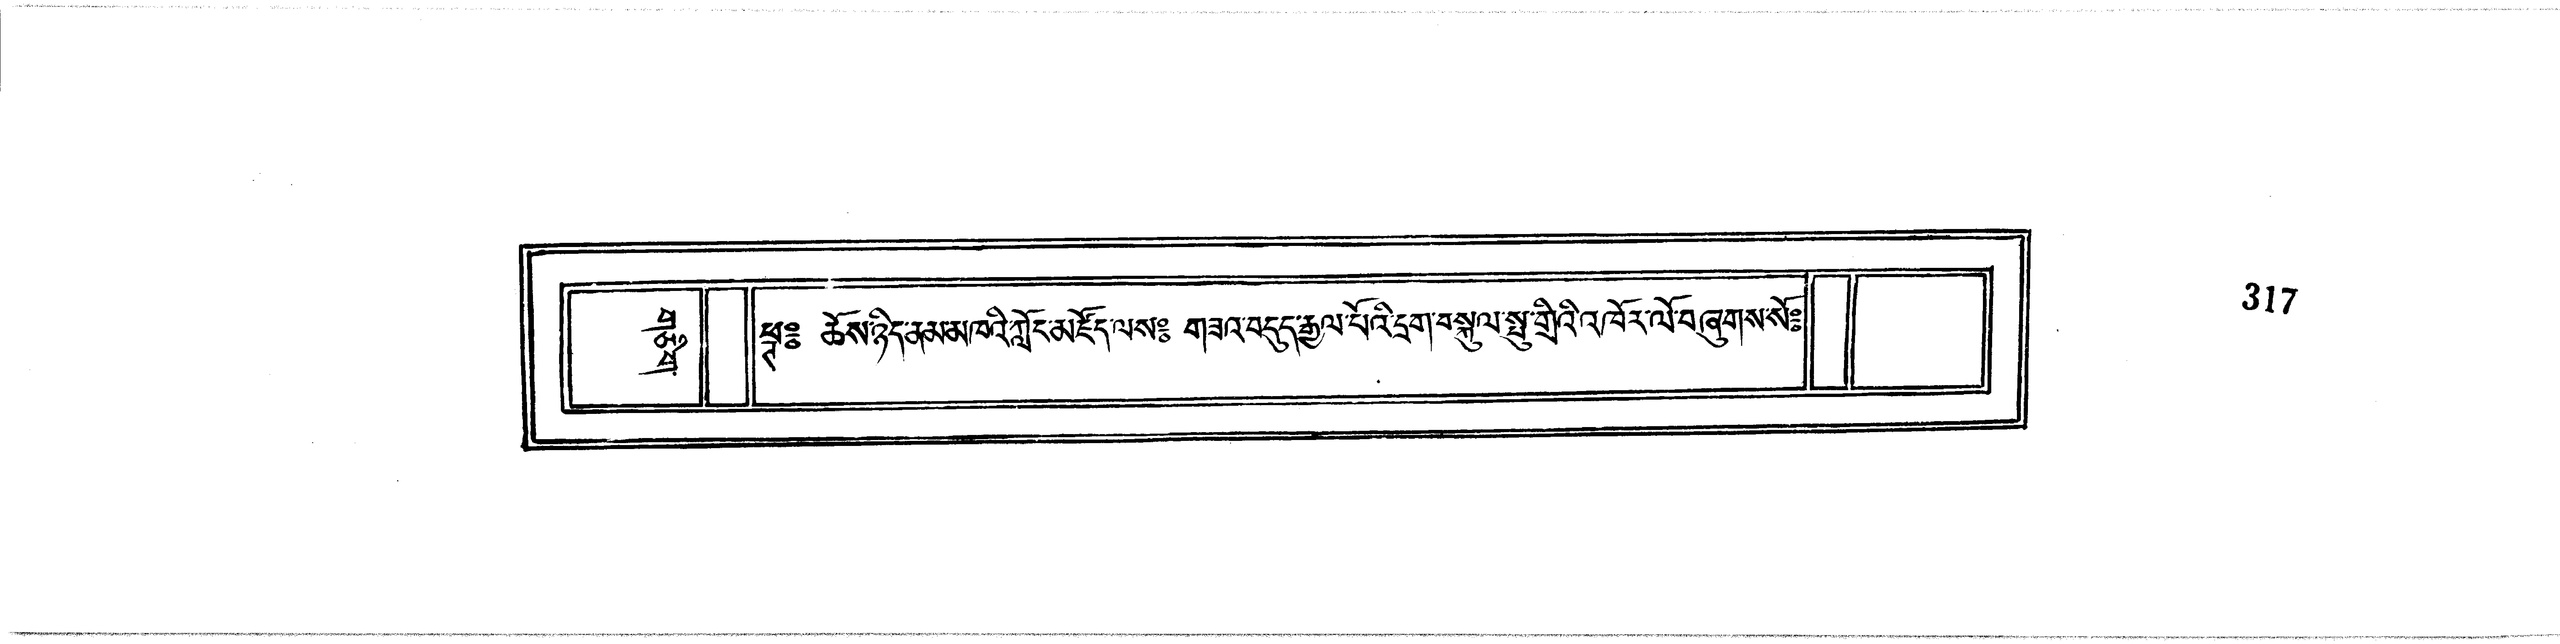 ཕྲྀ༔ ཆོས་ཉིད་ནམ་མཁའི་ཀློང་མཛོད་ལས༔ གཟའ་བདུད་རྒྱལ་པོའི་དྲག་བསྐུལ་སྤུ་གྲིའི་འཁོར་ལོ་བཞུགས་སོ༔
317